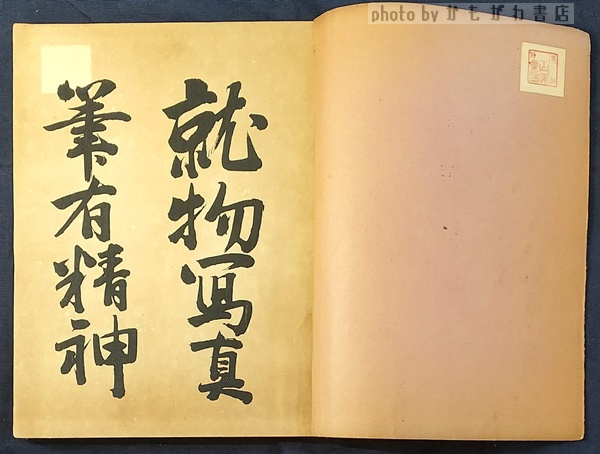 photo by かもがわ書店
就物寫真
筆有精神